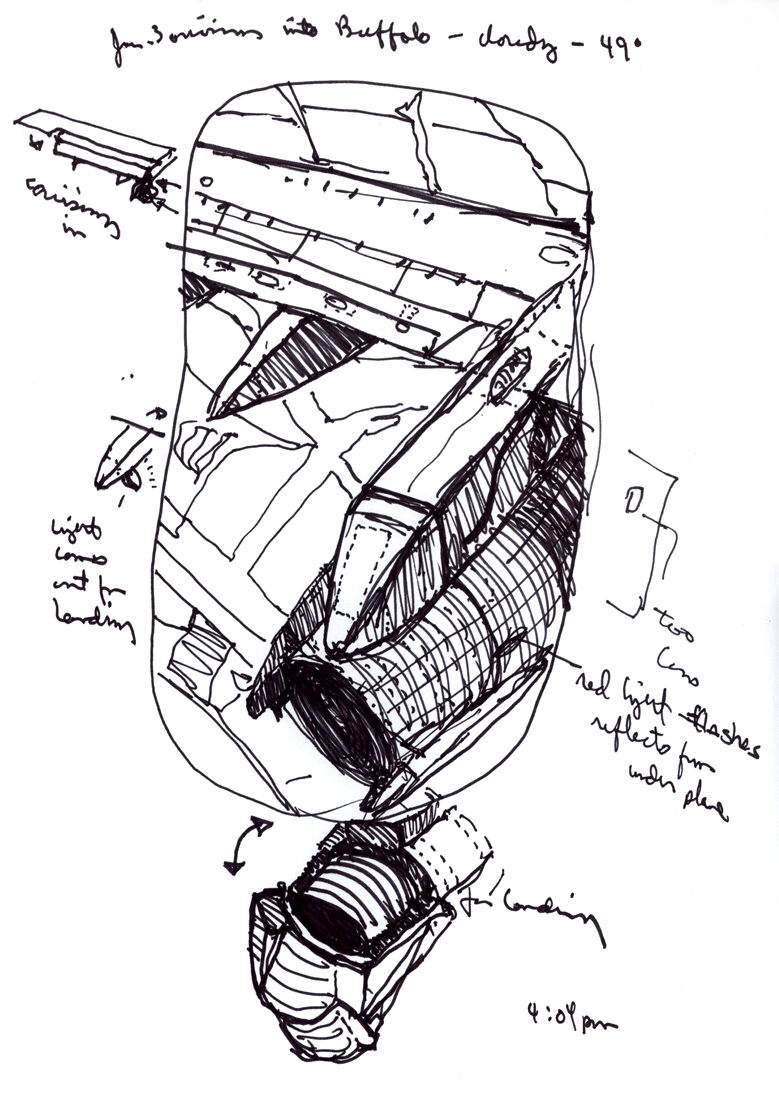 Jan. 3 arriving into Buffalo - cloudy - 49°
cruising
in
light
comes
out for
Landing
D
too
Less
red light flashes
reflects from
under plane
for landing
4:04 pm